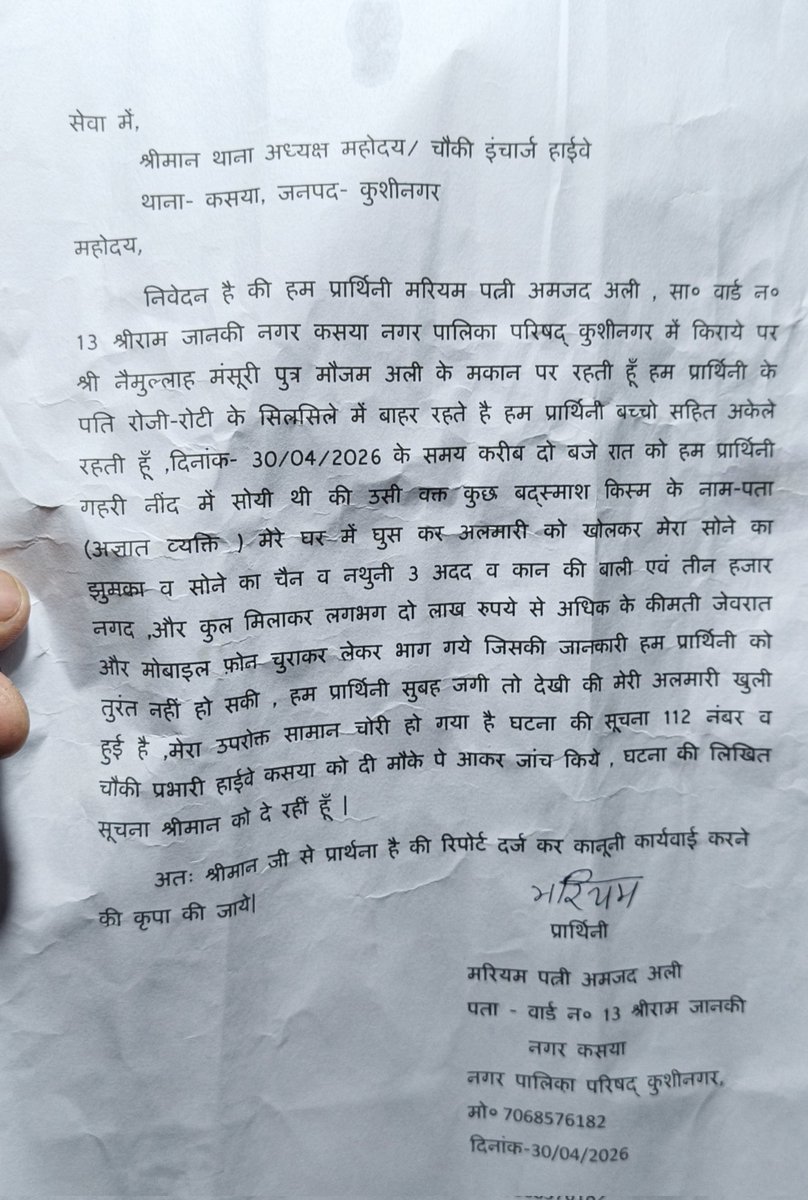 सेवा में,
श्रीमान थाना अध्यक्ष महोदय/ चौकी इंचार्ज हाईवे
थाना- कसया, जनपद- कुशीनगर
महोदय,
निवेदन है की हम प्रार्थिनी मरियम पत्नी अमजद अली , सा० वार्ड न०
13 श्रीराम जानकी नगर कसया नगर पालिका परिषद् कुशीनगर में किराये पर
श्री नैमुल्लाह मंसूरी पुत्र मौजम अली के मकान पर रहती हूँ हम प्रार्थिनी के
पति रोजी-रोटी के सिलसिले में बाहर रहते है हम प्रार्थिनी बच्चो सहित अकेले
रहती हूँ ,दिनांक- 30/04/2026 के समय करीब दो बजे रात को हम प्रार्थिनी
गहरी नींद में सोयी थी की उसी वक्त कुछ बद्स्माश किस्म के नाम-पता
(अज्ञात व्यक्ति ) मेरे घर में घुस कर अलमारी को खोलकर मेरा सोने का
झुमका व सोने का चैन व नथुनी 3 अदद व कान की बाली एवं तीन हजार
नगद ,और कुल मिलाकर लगभग दो लाख रुपये से अधिक के कीमती जेवरात
और मोबाइल फ़ोन चुराकर लेकर भाग गये जिसकी जानकारी हम प्रार्थिनी को
तुरंत नहीं हो सकी , हम प्रार्थिनी सुबह जगी तो देखी की मेरी अलमारी खुली
हुई है ,मेरा उपरोक्त सामान चोरी हो गया है घटना की सूचना 112 नंबर व
चौकी प्रभारी हाईवे कसया को दी मौके पे आकर जांच किये , घटना की लिखित
सूचना श्रीमान को दे रहीं हूँ |
अतः श्रीमान जी से प्रार्थना है की रिपोर्ट दर्ज कर कानूनी कार्यवाई करने
की कृपा की जाये|
मरियम
प्रार्थिनी
मरियम पत्नी अमजद अली
पता - वार्ड न० 13 श्रीराम जानकी
नगर कसया
नगर पालिका परिषद् कुशीनगर,
मो० 7068576182
दिनांक-30/04/2026